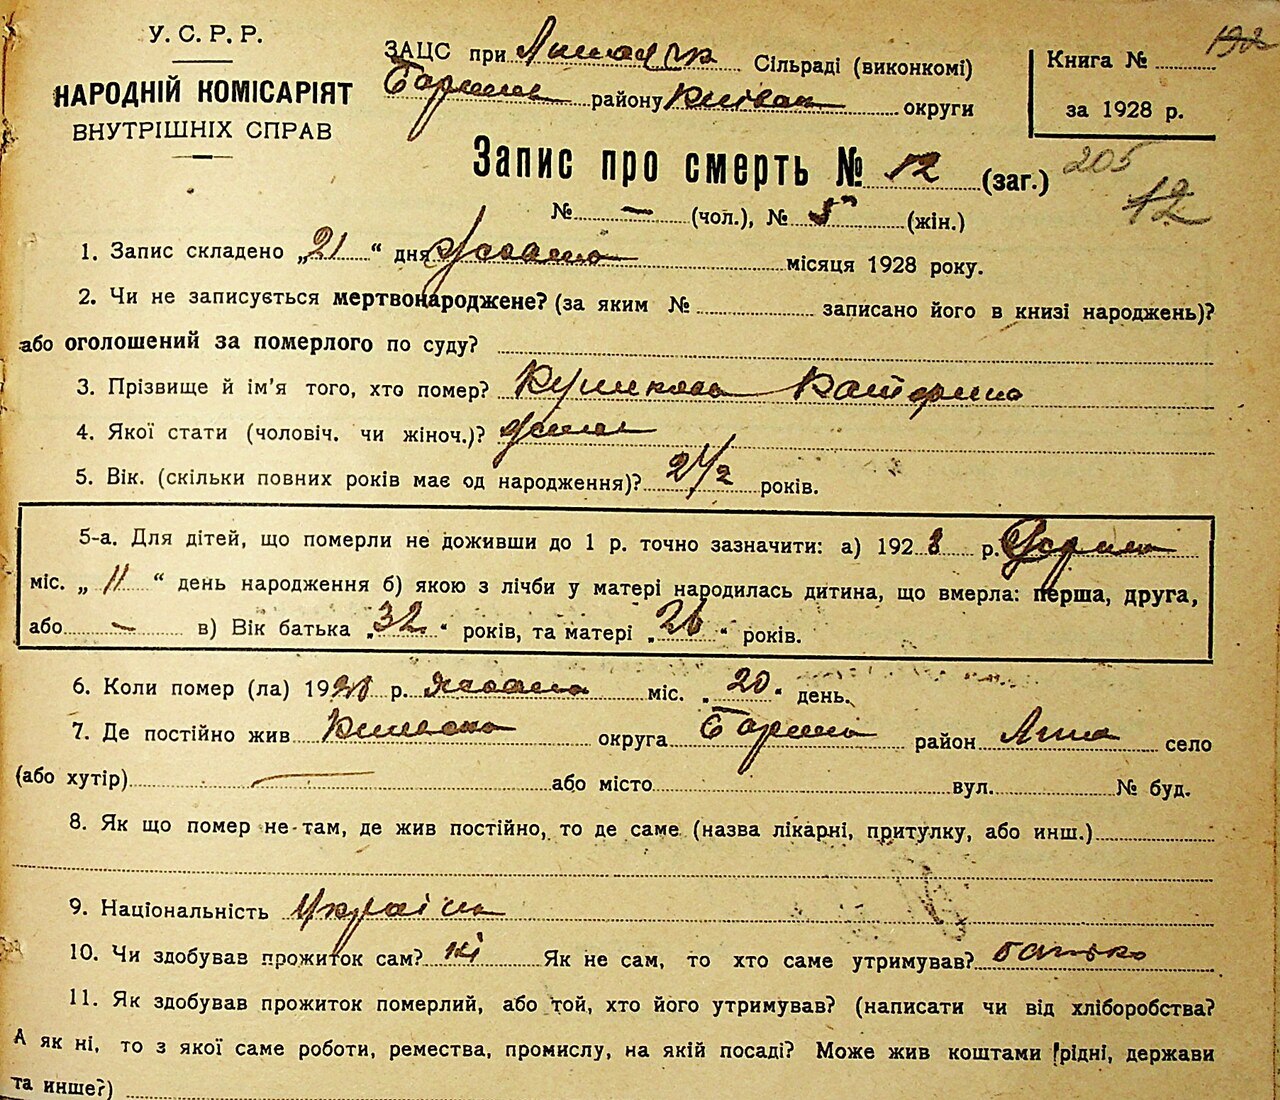 У. С. Р. Р.
НАРОДНІЙ КОМІСАРІЯТ
ВНУТРІШНІХ СПРАВ
ЗАЦС при Сільраді (виконкомі)
району округи
Книга №
за 1928 р.
Запис про смерть № 12 (заг.)
205
12
№ — (чол.), № 5 (жін.)
1. Запис складено „21“ дня місяця 1928 року.
2. Чи не записується мертвонароджене? (за яким № записано його в книзі народжень)?
або оголошений за померлого по суду?
3. Прізвище й ім'я того, хто помер? Катерина
4. Якої стати (чоловіч. чи жіноч.)?
5. Вік. (скільки повних років має од народження)? років.
5-а. Для дітей, що померли не доживши до 1 р. точно зазначити: а) 1928 р.
міс. „11“ день народження б) якою з лічби у матері народилась дитина, що вмерла: перша, друга,
або — в) Вік батька „32“ років, та матері „26“ років.
6. Коли помер (ла) 1928 р. міс. „20“ день.
7. Де постійно жив округа район село
(або хутір) або місто вул. № буд.
8. Як що помер не там, де жив постійно, то де саме (назва лікарні, притулку, або инш.)
9. Національність
10. Чи здобував прожиток сам? ні Як не сам, то хто саме утримував? батько
11. Як здобував прожиток померлий, або той, хто його утримував? (написати чи від хліборобства?
А як ні, то з якої саме роботи, ремества, промислу, на якій посаді? Може жив коштами рідні, держави
та инше?)